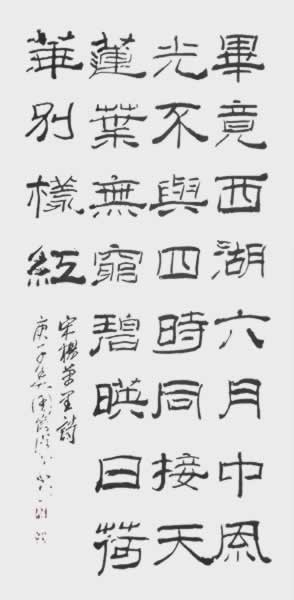 畢竟西湖六月中風
光不與四時同接天
蓮葉無窮碧暎日荷
華别樣紅
宋楊萬里詩
庚子